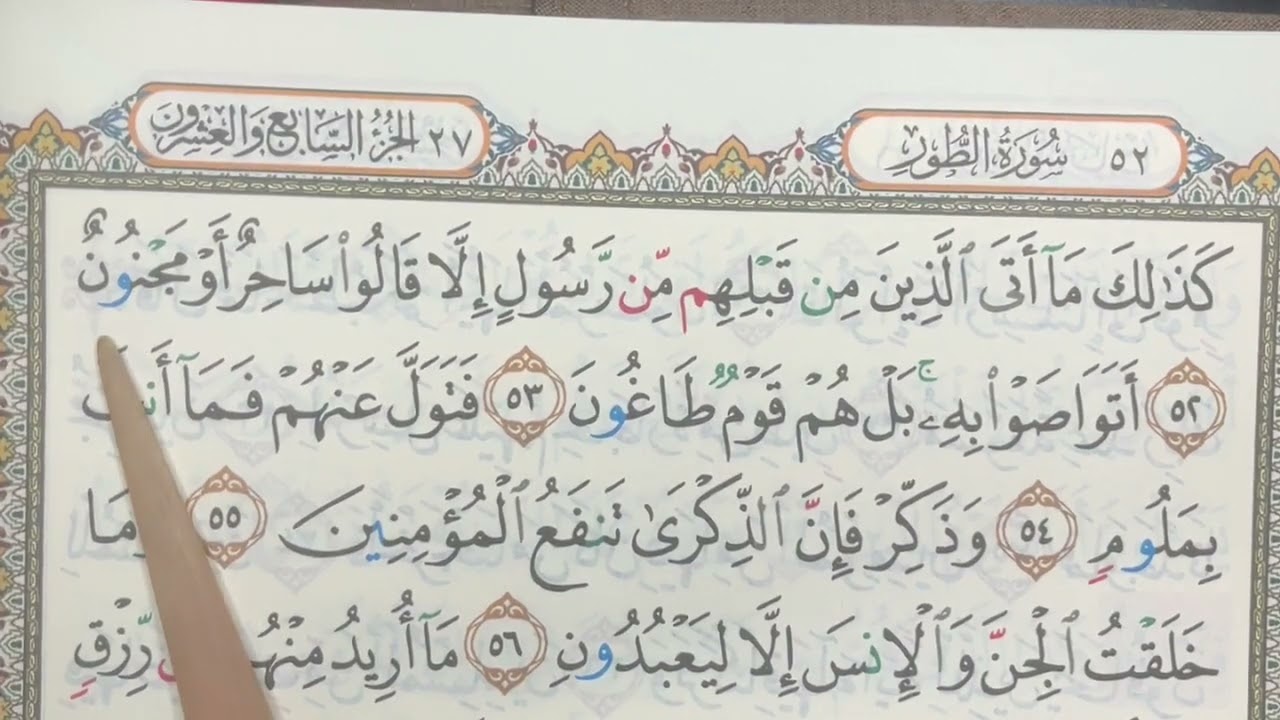 ٥٢ سُورَةُ الطُّورِ
٢٧ الجُزْءُ السَّابِعُ وَالعِشْرُونَ
كَذَٰلِكَ مَآ أَتَى ٱلَّذِينَ مِن قَبْلِهِم مِّن رَّسُولٍ إِلَّا قَالُوا۟ سَاحِرٌ أَوْ مَجْنُونٌ
٥٢ أَتَوَاصَوْا۟ بِهِۦ ۚ بَلْ هُمْ قَوْمٌ طَاغُونَ ٥٣ فَتَوَلَّ عَنْهُمْ فَمَآ
بِمَلُومٍ ٥٤ وَذَكِّرْ فَإِنَّ ٱلذِّكْرَىٰ تَنفَعُ ٱلْمُؤْمِنِينَ ٥٥
خَلَقْتُ ٱلْجِنَّ وَٱلْإِنسَ إِلَّا لِيَعْبُدُونِ ٥٦ مَآ أُرِيدُ رِّزْقٍ